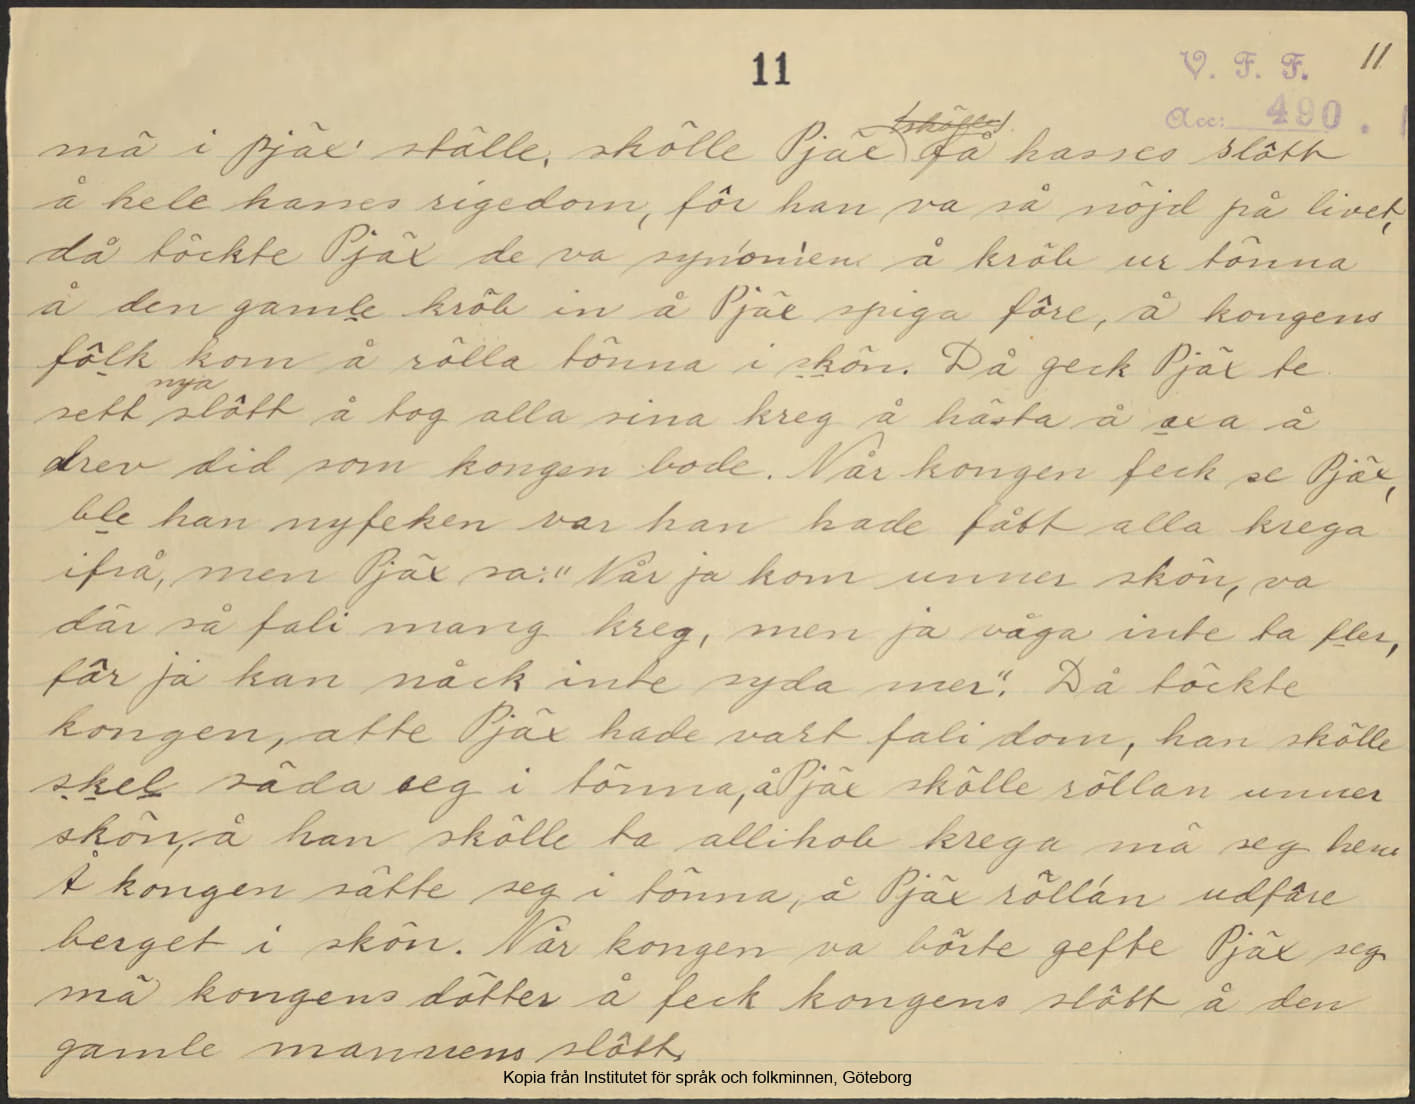 11
V. F. F.
11
Acc: 490.
mä i Pjäx' ställe, skölle Pjäx få hasses slôtt
å hele hasses rigedom, fôr han va så nöjd på livet,
då töckte Pjäx de va syn'om'en å kröb ur tönna
å den gamle kröb in å Pjäx spiga fôre, å kongens
fôlk kom å rölla tönna i skön. Då geck Pjäx te
sett nya slôtt å tog alla sina kreg å hästa å oxa å
drev did som kongen bode. Når kongen feck se Pjäx,
ble han nyfeken var han hade fått alla krega
ifrå, men Pjäx sa: "Når ja kom unner skön, va
där så fali mang kreg, men ja våga inte ta fler,
fôr ja kan nåck inte syda mer". Då töckte
kongen, atte Pjäx hade vart fali dom, han skölle
skel säda seg i tönna, å Pjäx skölle röllan unner
skön, å han skölle ta allihob krega mä seg hem
Å kongen sätte seg i tönna, å Pjäx röllán udfôre
berget i skön. Når kongen va börte gefte Pjäx seg
mä kongens dötter å feck kongens slôtt å den
gamle mannens slôtt.
Kopia från Institutet för språk och folkminnen, Göteborg